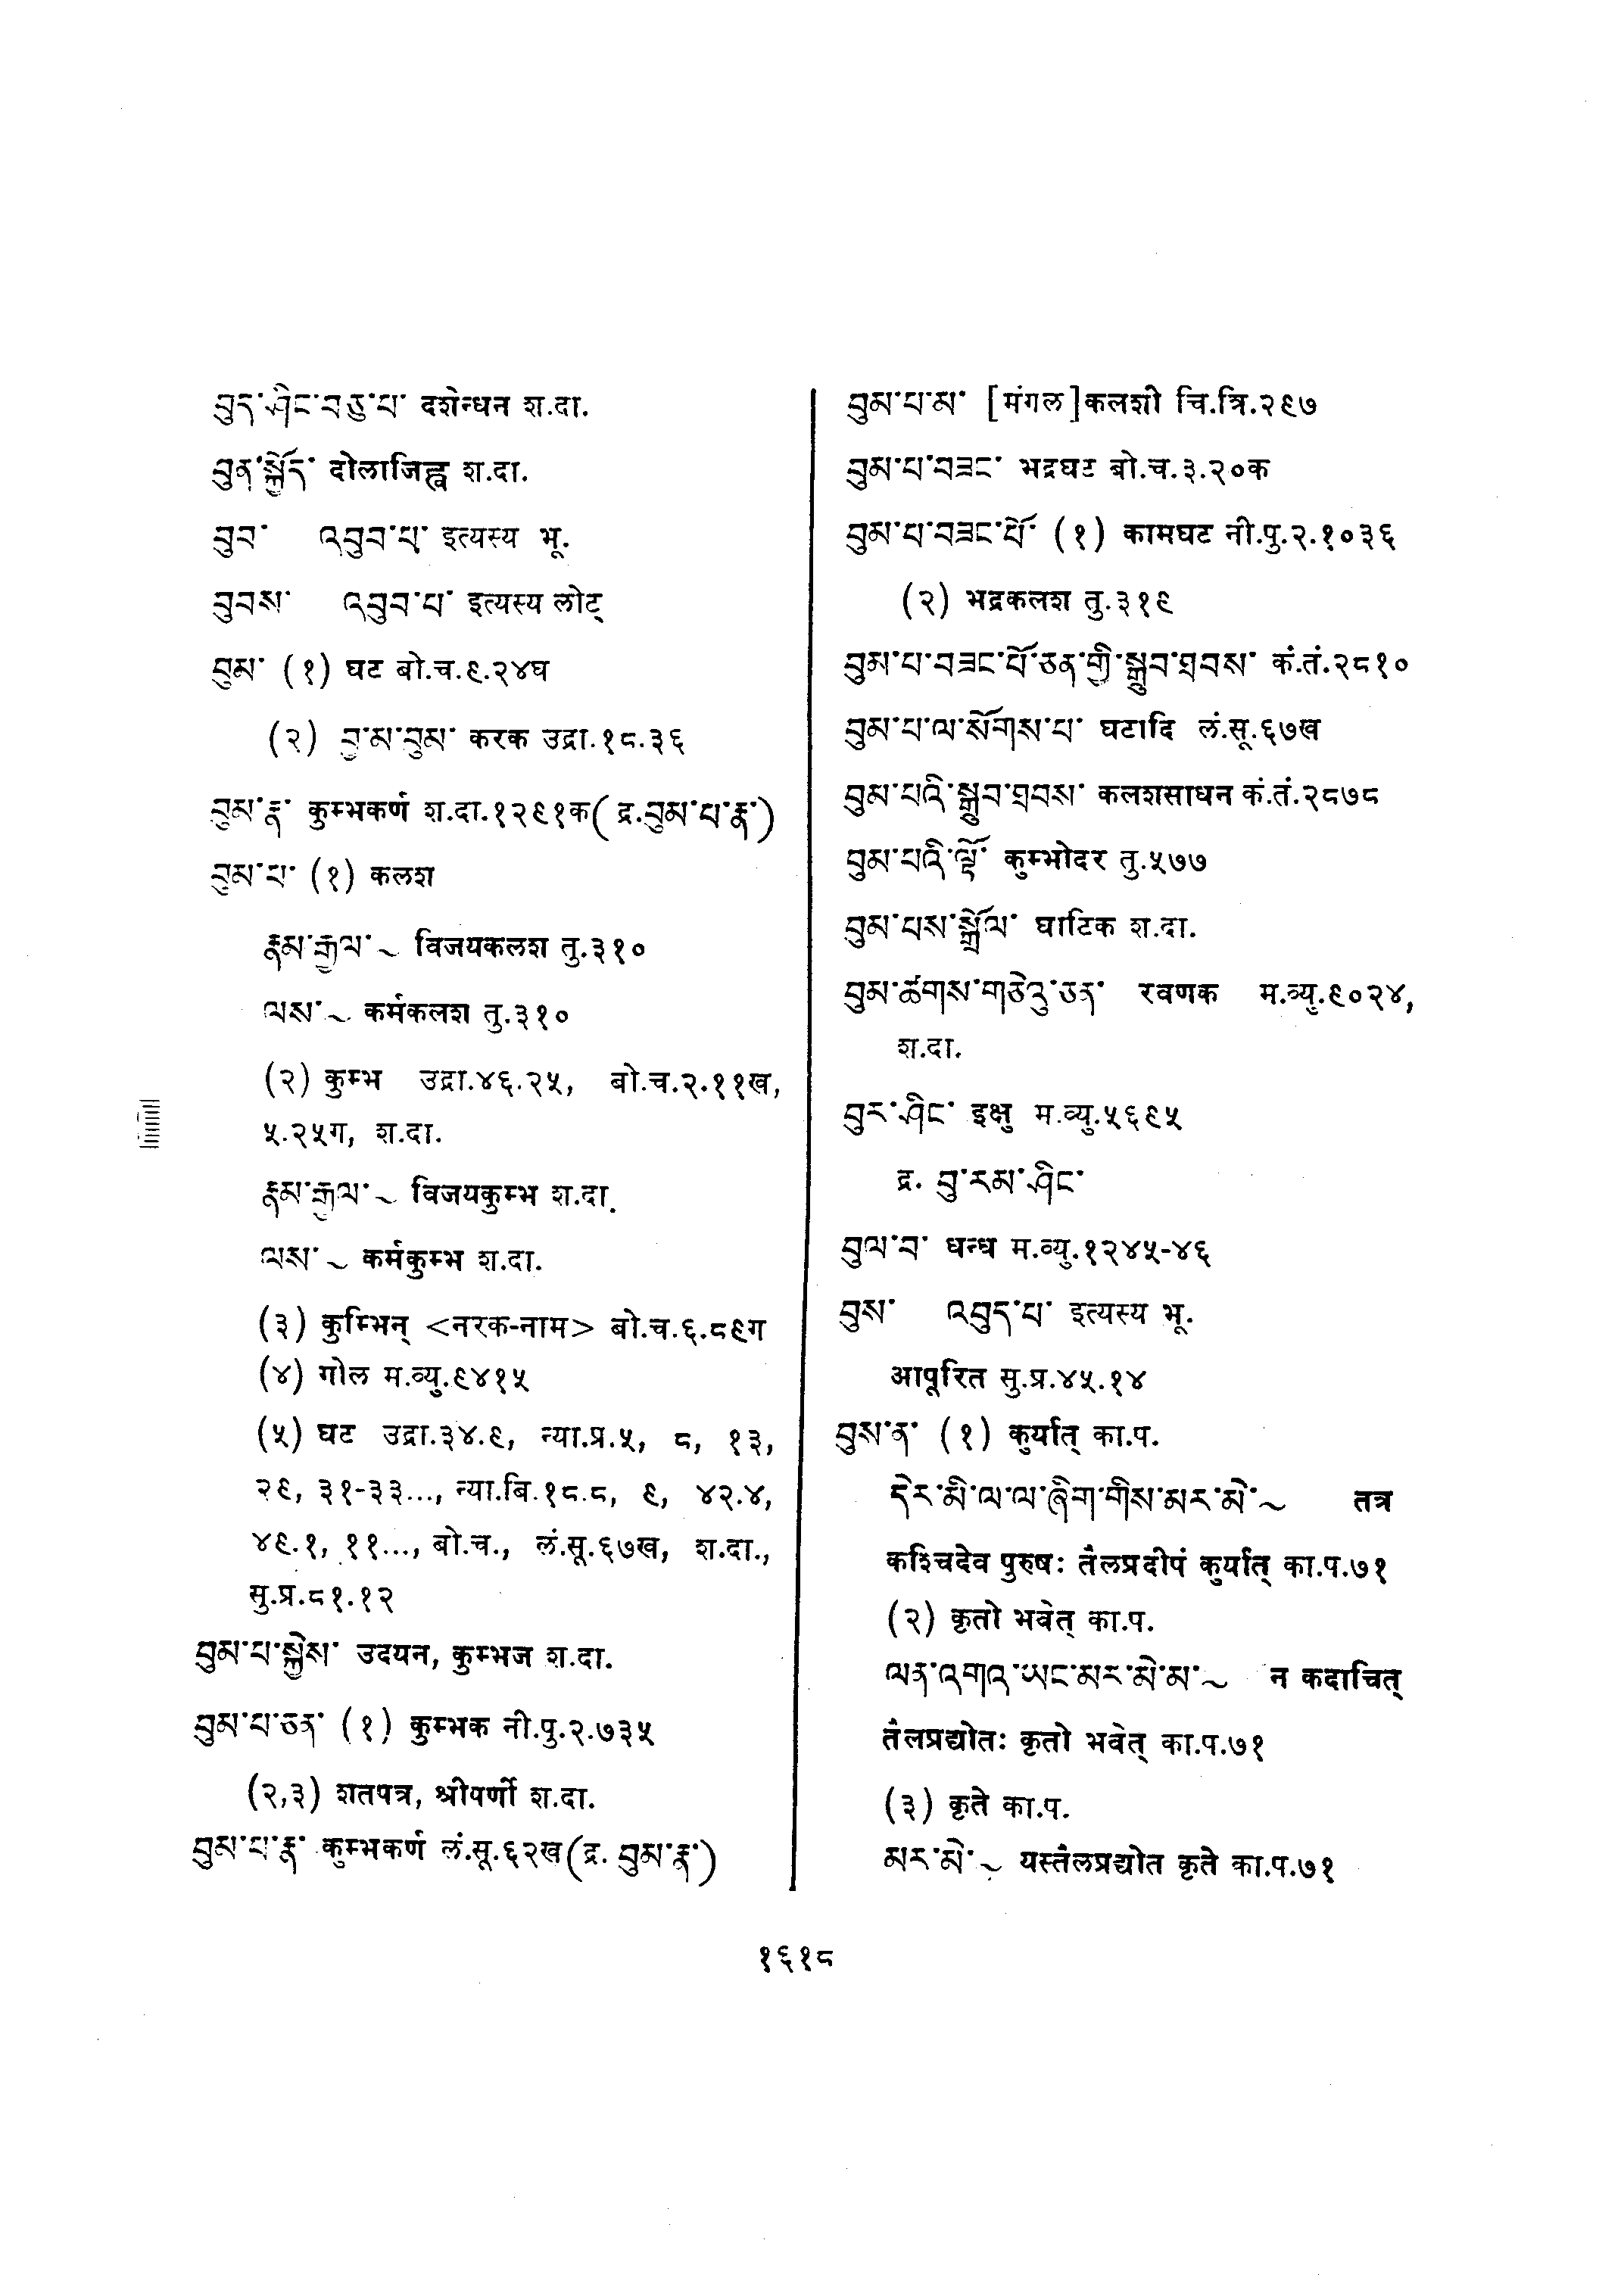 བུད་ཤིང་བཅུ་པ་ दशेन्धन श.दा.
བུན་སྐྱོད་ दोलाजिह्व श.दा.
བུབ་ འབུབ་པ་ इत्यस्य भू.
བུབས་ འབུབ་པ་ इत्यस्य लोट्
བུམ་ (१) घट बो.च.९.२४घ
(२) བྱ་མ་བུམ་ करक उद्रा.१८.३६
བུམ་རྣ་ कुम्भकर्ण श.दा.१२९१क(द्र.བུམ་པ་རྣ་)
བུམ་པ་ (१) कलश
རྣམ་རྒྱལ་~ विजयकलश तु.३१०
ལས་~ कर्मकलश तु.३१०
(२) कुम्भ उद्रा.४६.२५, बो.च.२.११ख,
५.२५ग, श.दा.
རྣམ་རྒྱལ་~ विजयकुम्भ श.दा.
ལས་~ कर्मकुम्भ श.दा.
(३) कुम्भिन् <नरक-नाम> बो.च.६.८९ग
(४) गोल म.व्यु.९४१५
(५) घट उद्रा.३४.९, न्या.प्र.५, ८, १३,
२९, ३१-३३..., न्या.बि.१८.८, ९, ४२.४,
४९.१, ११..., बो.च., लं.सू.६७ख, श.दा.,
सु.प्र.८१.१२
བུམ་པ་སྐྱེས་ उदयन, कुम्भज श.दा.
བུམ་པ་ཅན་ (१) कुम्भक नी.पु.२.७३५
(२,३) शतपत्र, श्रीपर्णी श.दा.
བུམ་པ་རྣ་ कुम्भकर्ण लं.सू.६२ख(द्र. བུམ་རྣ་)
བུམ་པ་མ་ [मंगल]कलशी चि.त्रि.२९७
བུམ་པ་བཟང་ भद्रघट बो.च.३.२०क
བུམ་པ་བཟང་པོ་ (१) कामघट नी.पु.२.१०३६
(२) भद्रकलश तु.३१९
བུམ་པ་བཟང་པོ་ཅན་གྱི་སྒྲུབ་ཐབས་ कं.तं.२८१०
བུམ་པ་ལ་སོགས་པ་ घटादि लं.सू.६७ख
བུམ་པའི་སྒྲུབ་ཐབས་ कलशसाधन कं.तं.२८७८
བུམ་པའི་ལྟོ་ कुम्भोदर तु.५७७
བུམ་པས་སྒྲོལ་ घाटिक श.दा.
བུམ་ཚགས་གཅེའུ་ཅན་ रवणक म.व्यु.९०२४,
श.दा.
བུར་ཤིང་ इक्षु म.व्यु.५६९५
द्र. བུ་རམ་ཤིང་
བུལ་བ་ धन्ध म.व्यु.१२४५-४६
བུས་ འབུད་པ་ इत्यस्य भू.
आपूरित सु.प्र.४५.१४
བུས་ན་ (१) कुर्यात् का.प.
དེར་མི་ལ་ལ་ཞིག་གིས་མར་མེ་~ तत्र
कश्चिदेव पुरुषः तैलप्रदीपं कुर्यात् का.प.७१
(२) कृतो भवेत् का.प.
ལན་འགའ་ཡང་མར་མེ་མ་~ न कदाचित्
तैलप्रद्योतः कृतो भवेत् का.प.७१
(३) कृते का.प.
མར་མེ་~ यस्तैलप्रद्योत कृते का.प.७१
१६१८